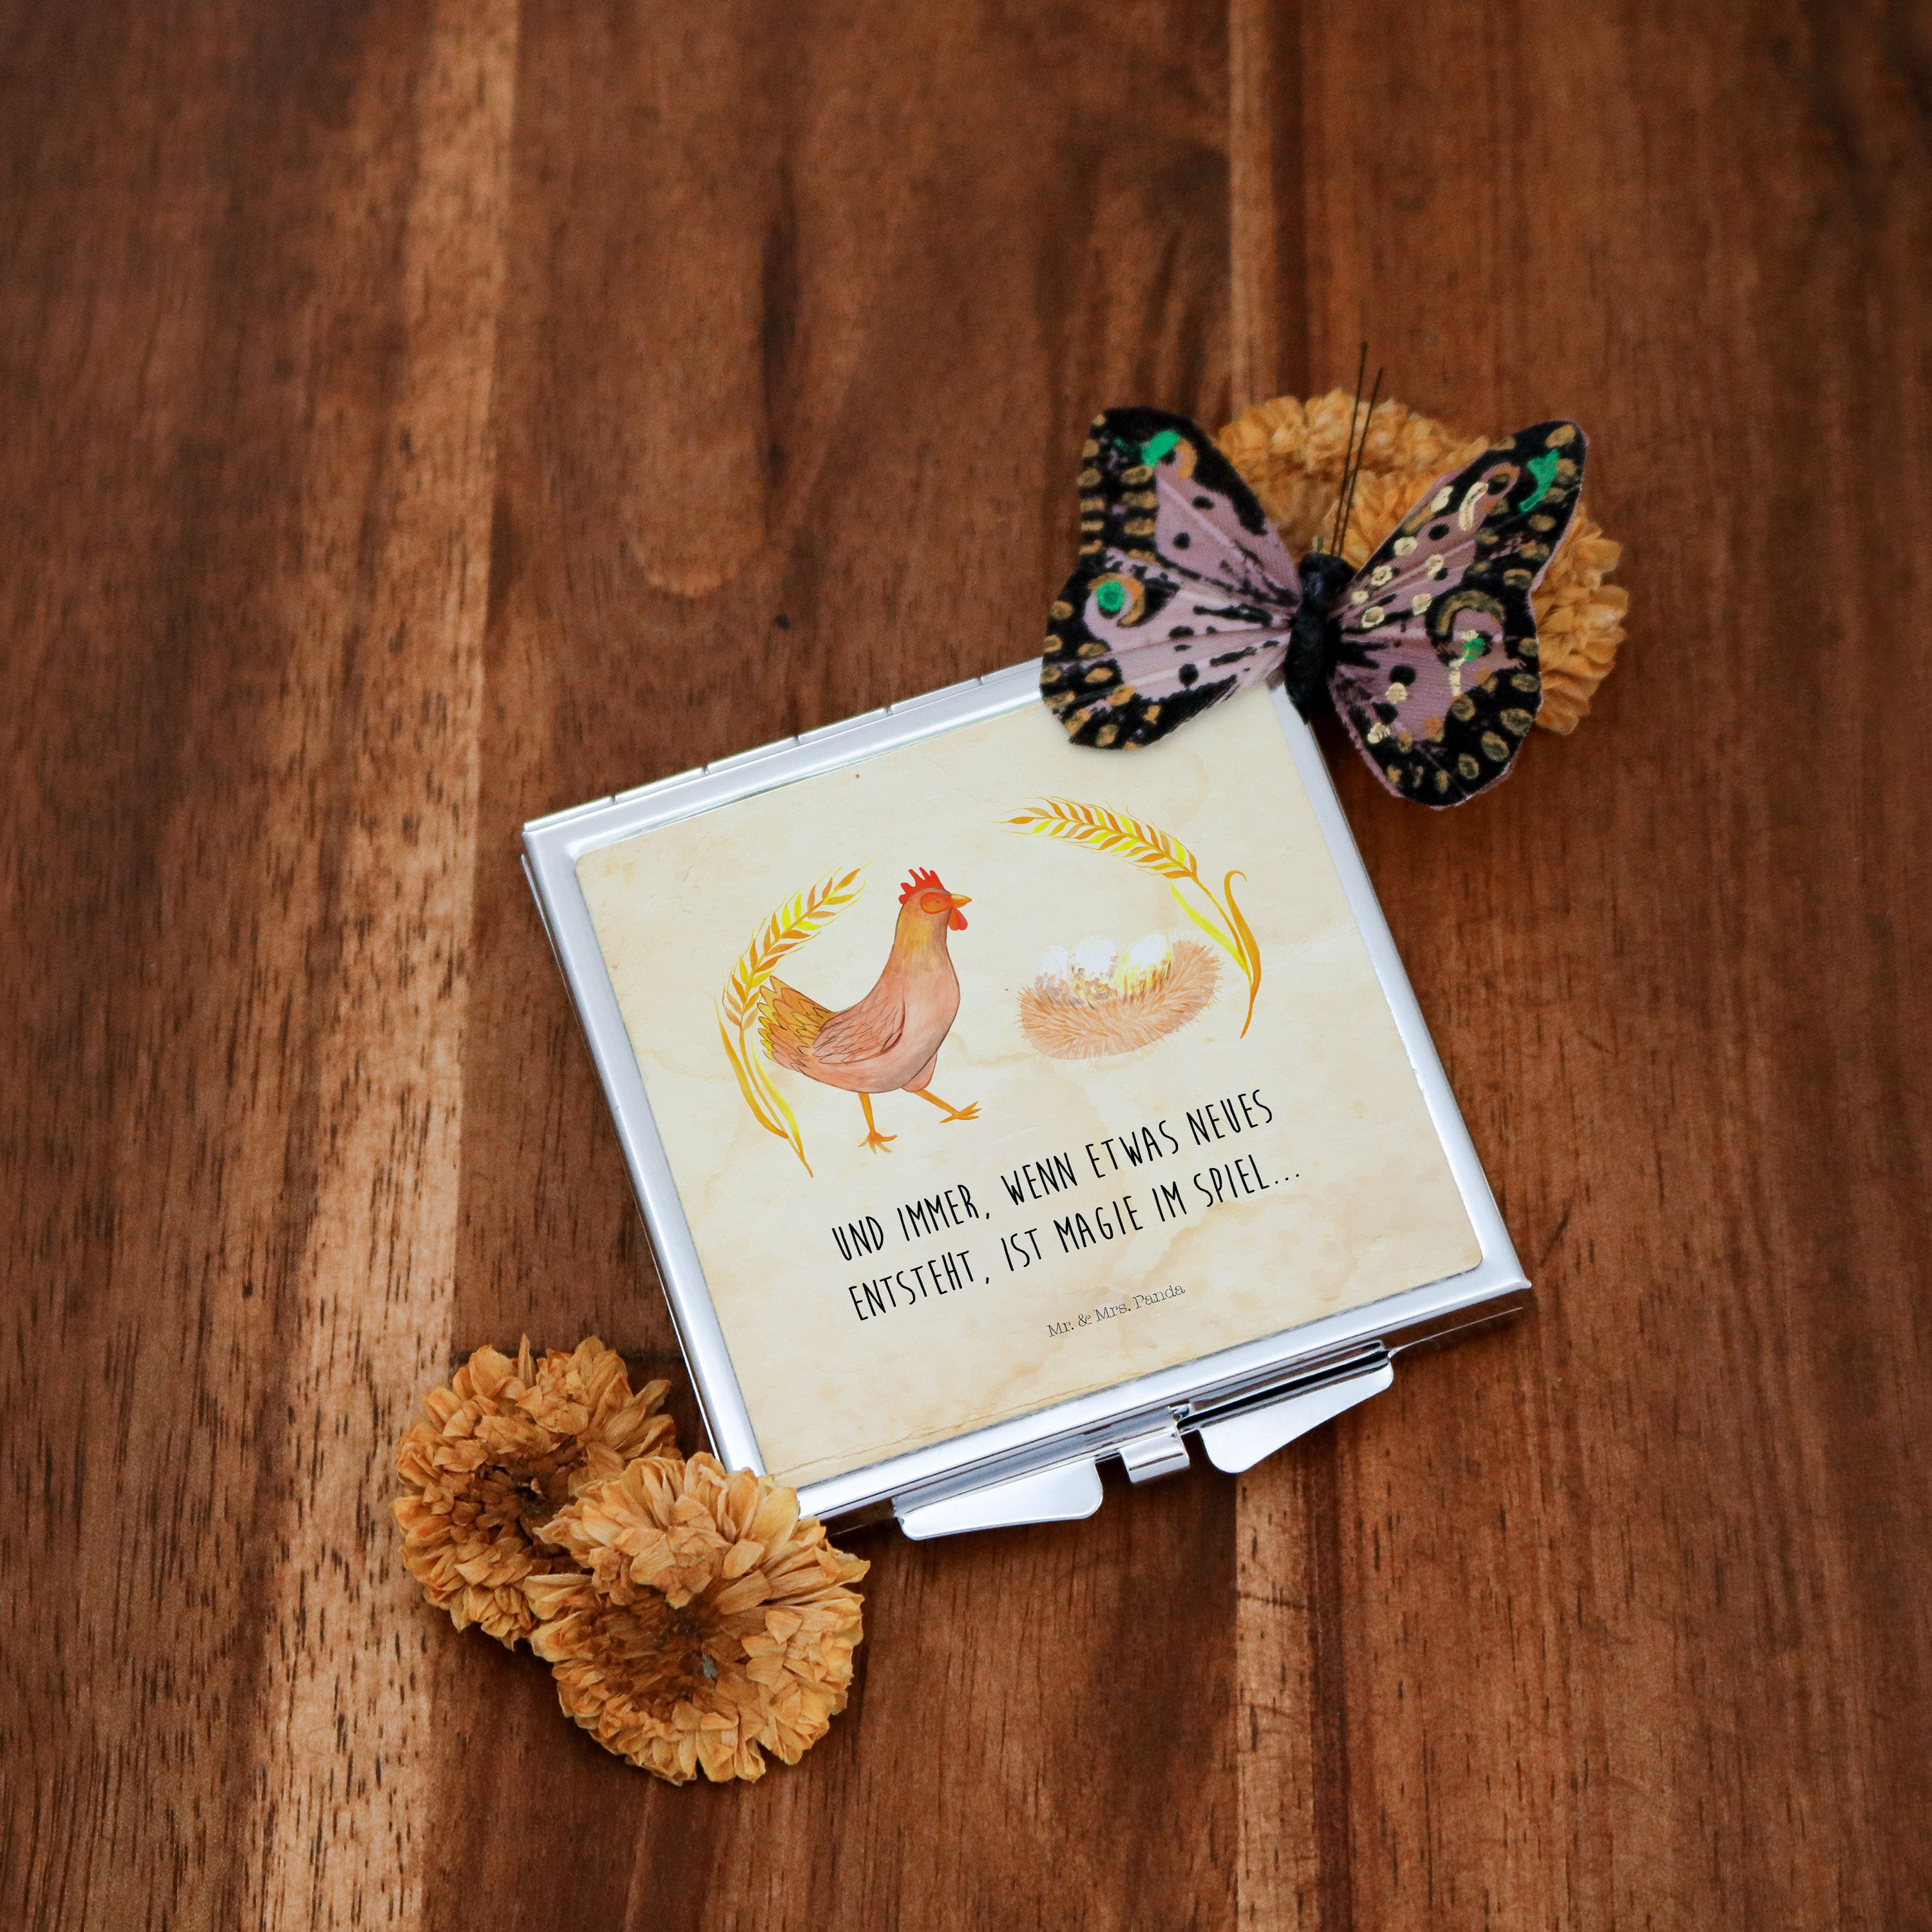 UND IMMER, WENN ETWAS NEUES
ENTSTEHT, IST MAGIE IM SPIEL...
Mr. & Mrs. Panda